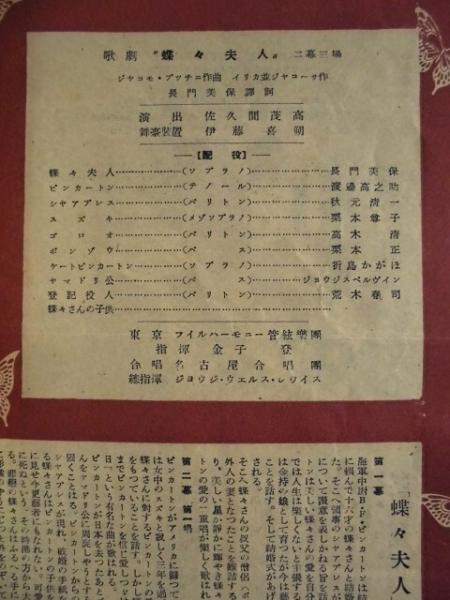 歌劇 “蝶々夫人” 二幕三場
ジヤコモ・プツチニ作曲 イリカ並ジヤコーザ作
長門美保譯詞
演出 佐久間茂高
舞臺裝置 伊藤喜朔
【配役】
蝶々夫人(ソプラノ)長門美保
ピンカートン(テノール)渡邊高之助
シヤアプレス(バリトン)秋元清一
スズキ(メゾソプラノ)栗本尊子
ゴロオ(バリトン)高木清
ボンゾウ(バス)栗本正
ケートピンカートン(ソプラノ)折島かがほ
ヤマドリ公(バス)ジョウジスペルヴイン
登記役人(バリトン)荒木春司
蝶々さんの子供
東京フイルハーモニー管絃樂團
指揮 金子登
合唱 名古屋合唱團
總指揮 ジヨウジ・ウエルス・レワイス
「蝶々夫人
第一幕
海軍中尉B・F・ピンカートンは結
に頼んで廿六才の蝶々さんと結婚
た。そこへ領事のシヤアプレスが
について誠意を
トンは美しい蝶々さんの愛を自分
では人生は樂しくないと主張する
は金持の娘として育つたが今は藝
ことを話す。そして結婚式があげ
される。
そこへ蝶々さんの叔父の僧侶、ボ
外人の妻となつたことを雑詰する
り、美しい星が靜かに輝やき蝶々
トンの愛の二重唱が樂しく歌はれ
第二幕 第一場
ピンカートンがアメリカに歸つて
は女中のスズキと寂しく三年を過
蝶々さんに對するピンカートンの
をもつていることを話す。しかし
までピンカートンを信じ愛しつゞ
日」という有名な曲が歌はれる。
ピンカートンが日本を去つたあと